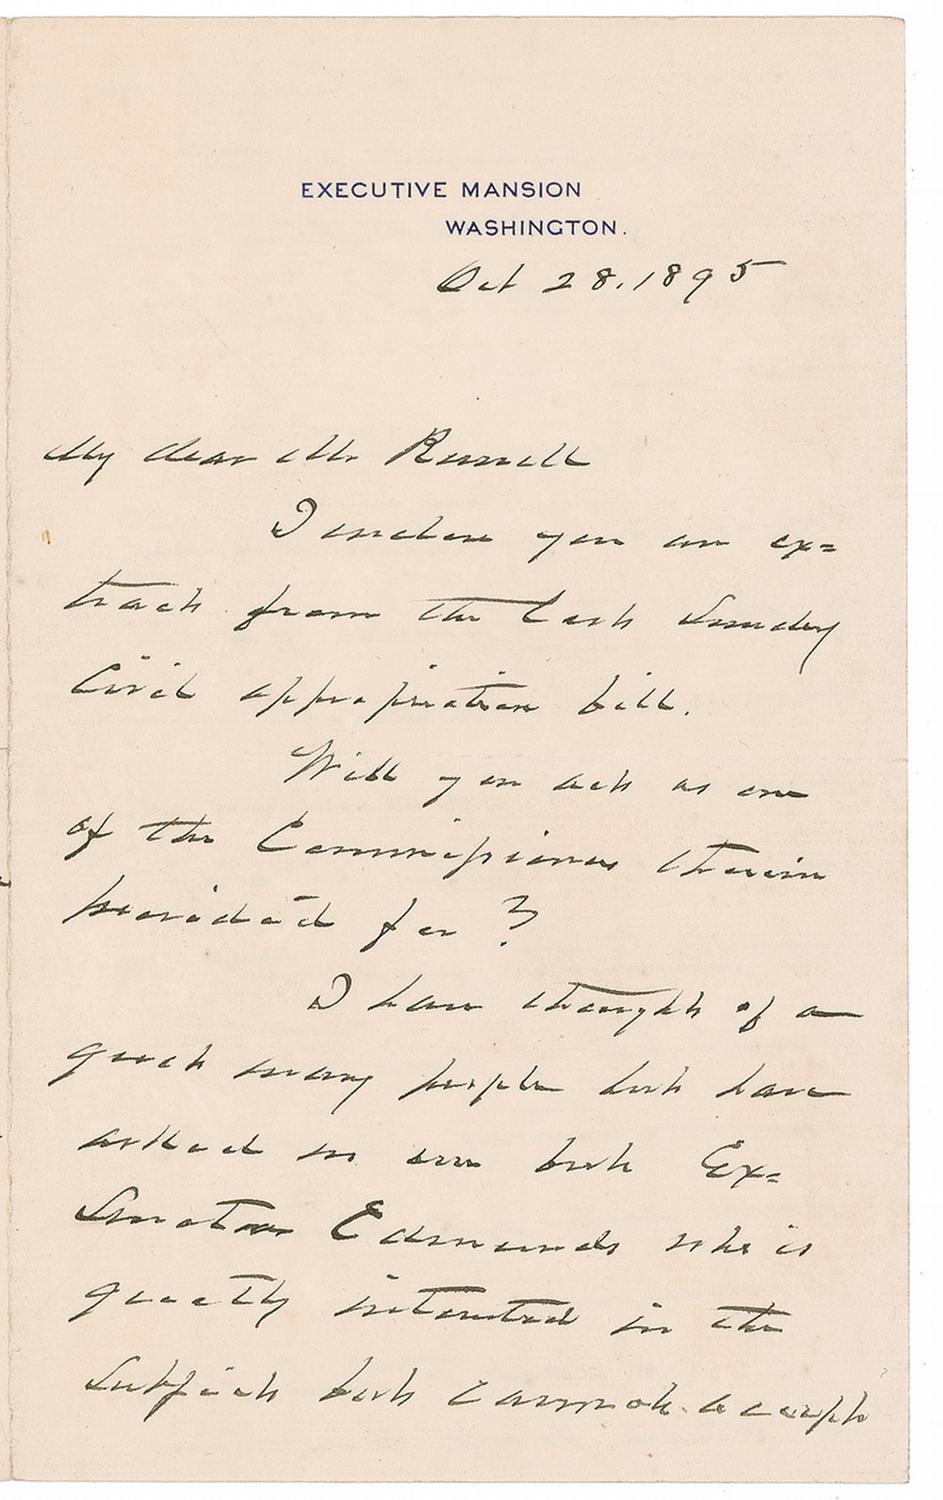 EXECUTIVE MANSION
WASHINGTON.
Oct 28. 1895
My dear Mr. Russell
I enclose you an ex=
tract from the last Sundry
Civil appropriation bill.
Will you act as one
of the Commissioners therein
provided for?
I have thought of a
great many people but have
asked no one but Ex=
Senator Edmunds who is
greatly interested in the
subject but cannot accept